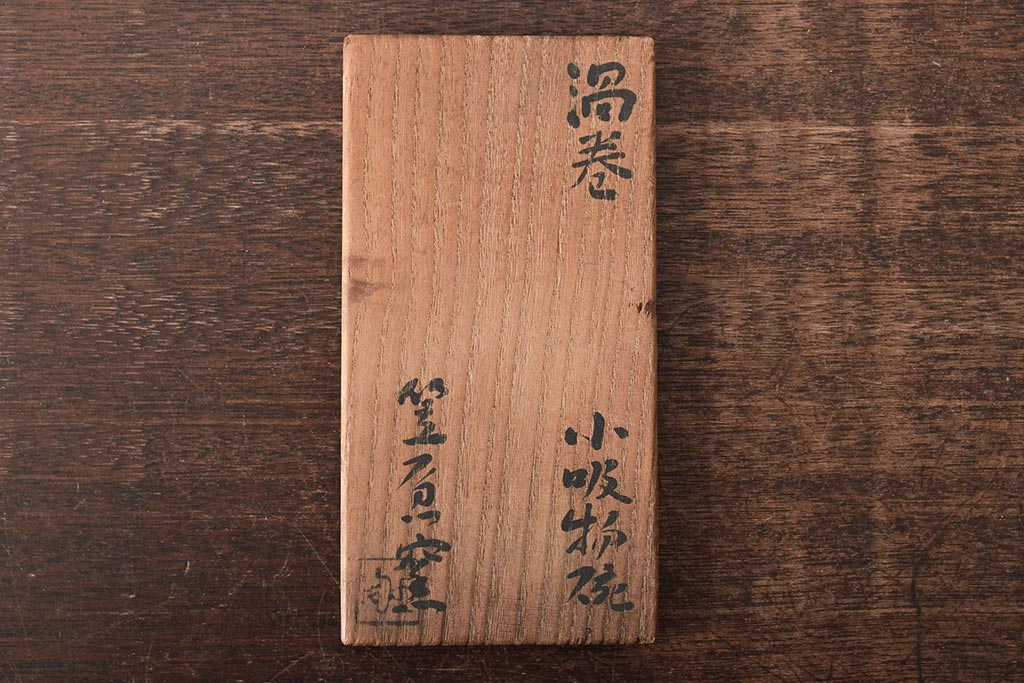 渦巻
小吸物碗
笠原窯